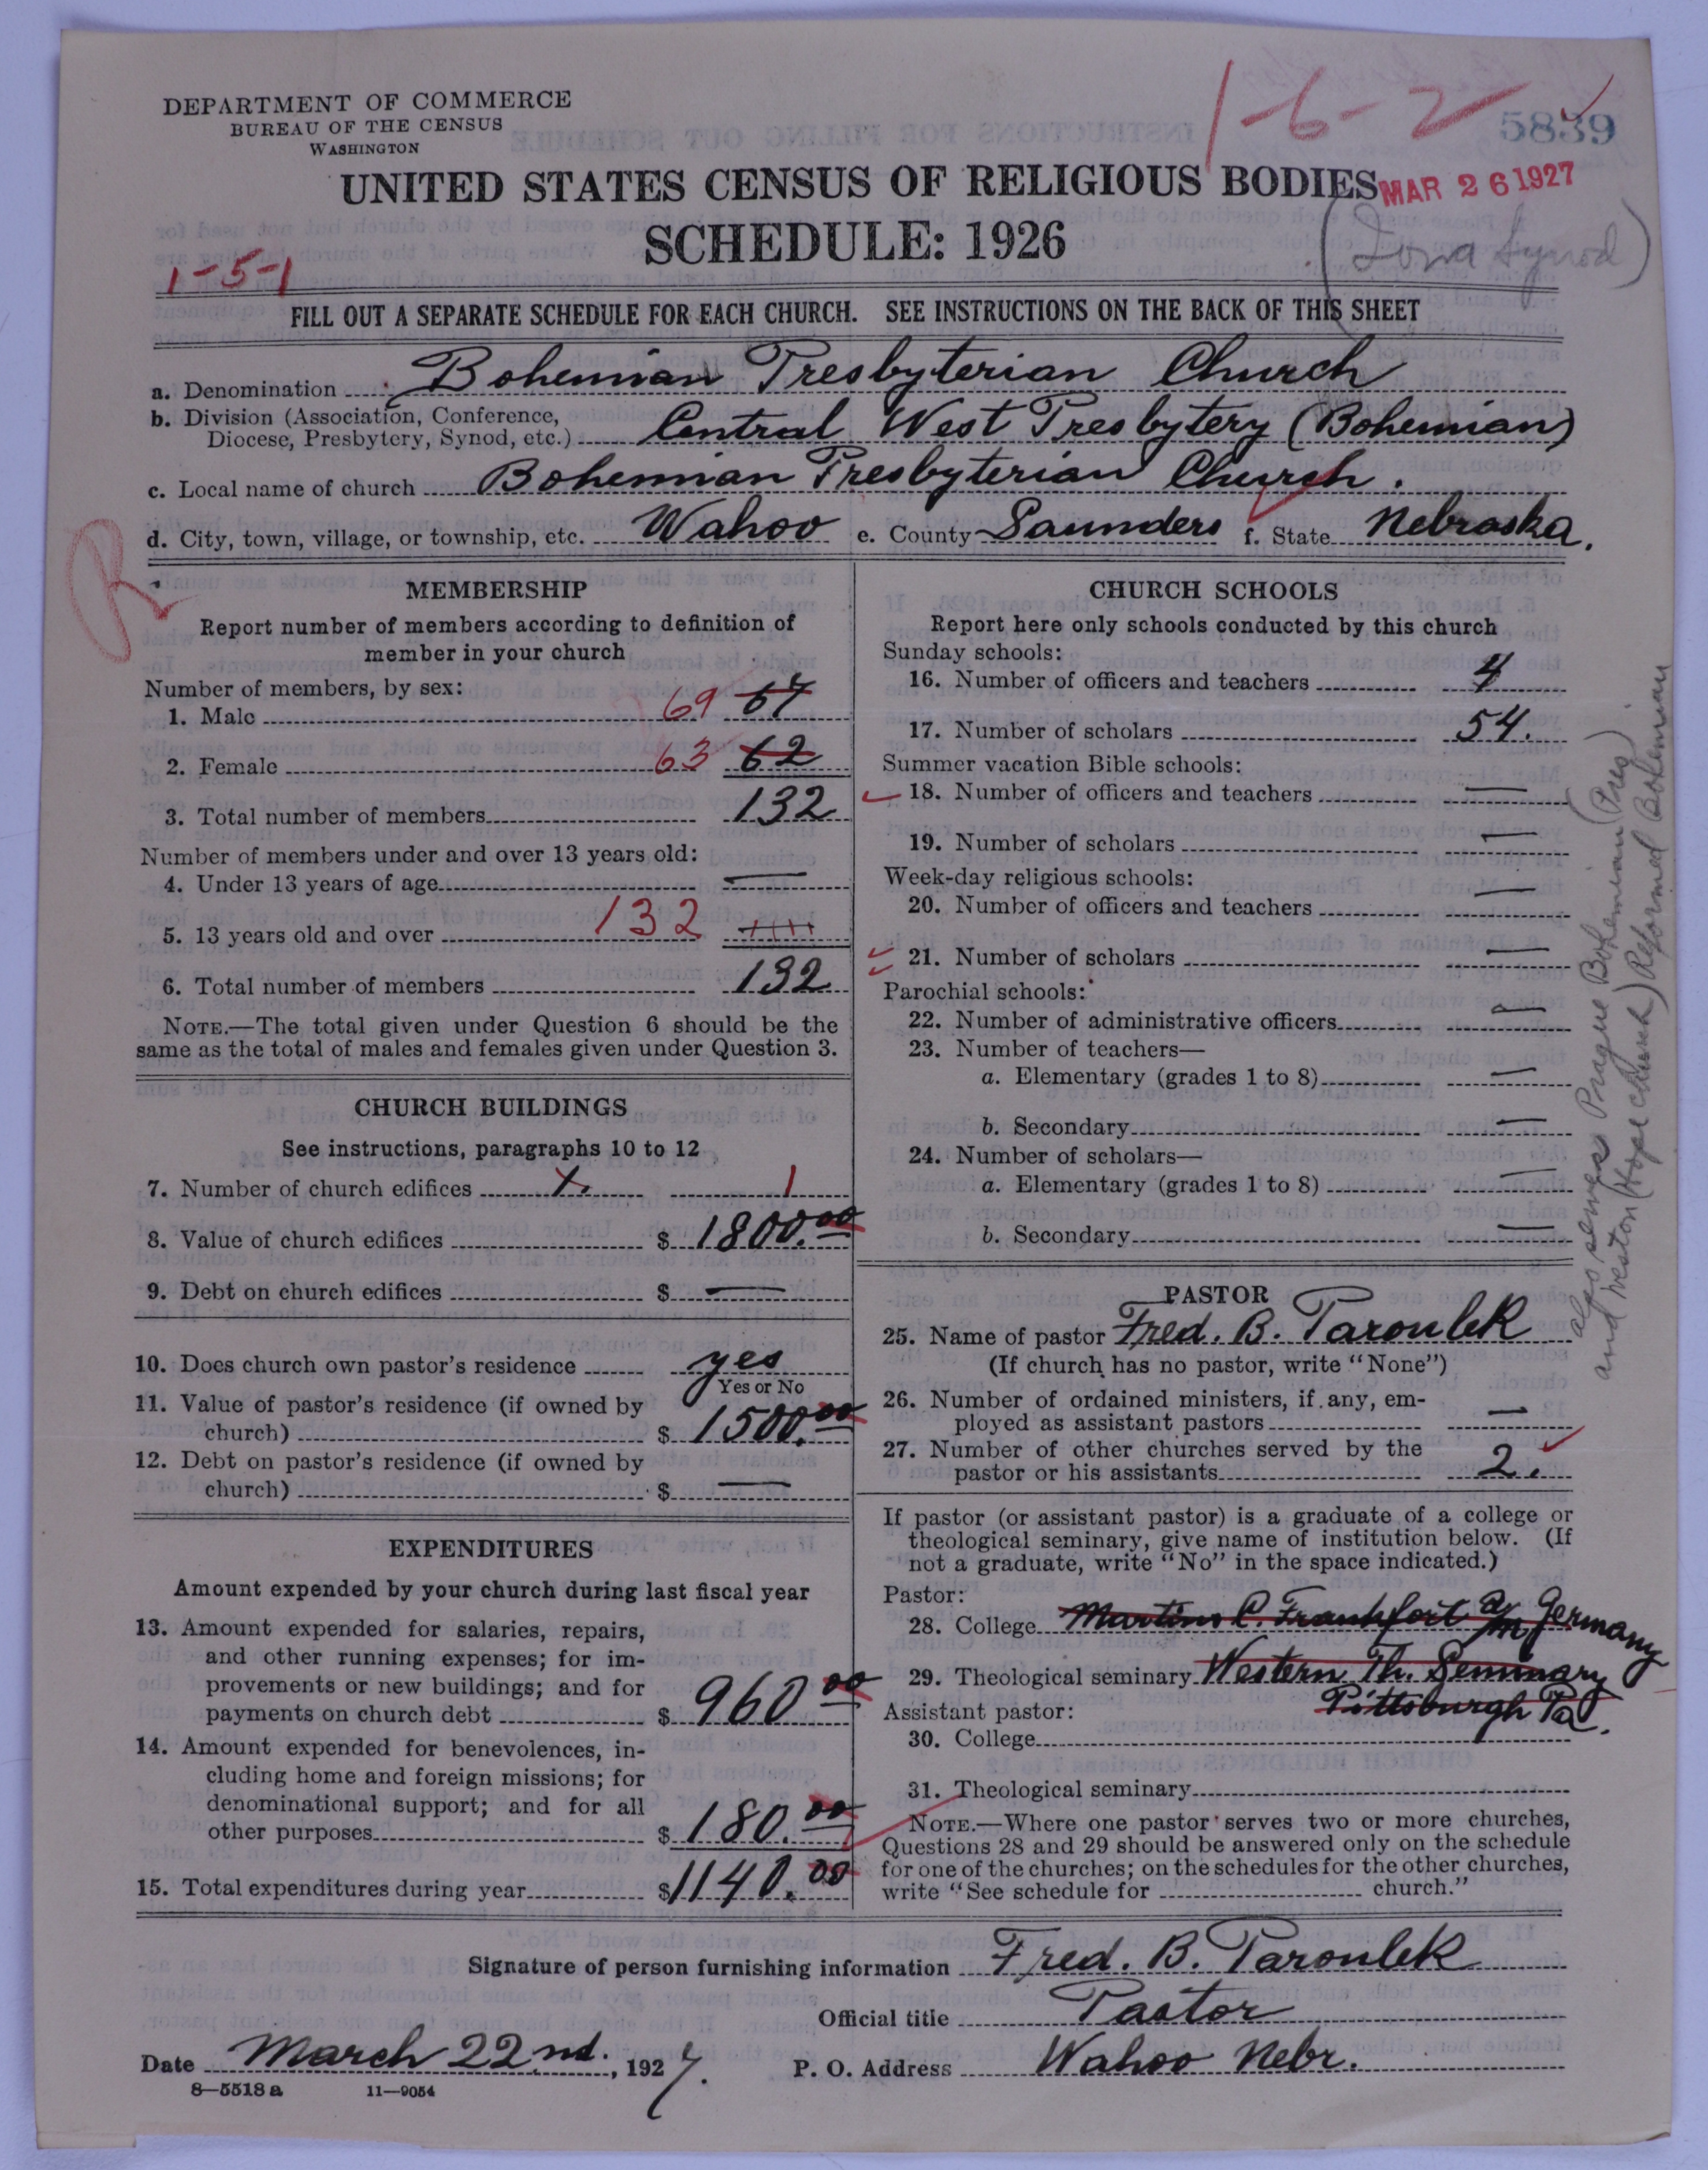 DEPARTMENT OF COMMERCE
BUREAU OF THE CENSUS
WASHINGTON
1-6-2
5839
UNITED STATES CENSUS OF RELIGIOUS BODIES
MAR 26 1927
SCHEDULE: 1926
1-5-1
FILL OUT A SEPARATE SCHEDULE FOR EACH CHURCH. SEE INSTRUCTIONS ON THE BACK OF THIS SHEET
a. Denomination Bohemian Presbyterian Church
b. Division (Association, Conference,
Diocese, Presbytery, Synod, etc.) Central West Presbytery (Bohemian)
c. Local name of church Bohemian Presbyterian Church.
d. City, town, village, or township, etc. Wahoo e. County Saunders f. State Nebraska.
R
MEMBERSHIP
Report number of members according to definition of
member in your church
Number of members, by sex:
1. Male 69 67
2. Female 63 62
3. Total number of members 132
Number of members under and over 13 years old:
4. Under 13 years of age —
5. 13 years old and over 132
6. Total number of members 132
NOTE.—The total given under Question 6 should be the
same as the total of males and females given under Question 3.
CHURCH BUILDINGS
See instructions, paragraphs 10 to 12
7. Number of church edifices 1. 1
8. Value of church edifices $ 1800.00
9. Debt on church edifices $ —
10. Does church own pastor's residence yes
Yes or No
11. Value of pastor's residence (if owned by
church) $ 1500.00
12. Debt on pastor's residence (if owned by
church) $ —
EXPENDITURES
Amount expended by your church during last fiscal year
13. Amount expended for salaries, repairs,
and other running expenses; for im-
provements or new buildings; and for
payments on church debt $ 960.00
14. Amount expended for benevolences, in-
cluding home and foreign missions; for
denominational support; and for all
other purposes $ 180.00
15. Total expenditures during year $ 1140.00
CHURCH SCHOOLS
Report here only schools conducted by this church
Sunday schools:
16. Number of officers and teachers 4
17. Number of scholars 54.
Summer vacation Bible schools:
18. Number of officers and teachers —
19. Number of scholars —
Week-day religious schools:
20. Number of officers and teachers —
21. Number of scholars —
Parochial schools:
22. Number of administrative officers —
23. Number of teachers—
a. Elementary (grades 1 to 8) —
b. Secondary —
24. Number of scholars—
a. Elementary (grades 1 to 8) —
b. Secondary —
PASTOR
25. Name of pastor Fred. B. Paroulek
(If church has no pastor, write "None")
26. Number of ordained ministers, if any, em-
ployed as assistant pastors —
27. Number of other churches served by the
pastor or his assistants 2.
If pastor (or assistant pastor) is a graduate of a college or
theological seminary, give name of institution below. (If
not a graduate, write "No" in the space indicated.)
Pastor:
28. College Martins C. Frankfort a/m Germany
29. Theological seminary Western Th. Seminary
Pittsburgh Pa.
Assistant pastor:
30. College
31. Theological seminary
NOTE.—Where one pastor serves two or more churches,
Questions 28 and 29 should be answered only on the schedule
for one of the churches; on the schedules for the other churches,
write "See schedule for church."
also serves Prague Bohemian (Pres)
and Weston (Hope church) Reformed Bohemian
Signature of person furnishing information Fred. B. Paroulek
Official title Pastor
Date March 22nd., 1927. P. O. Address Wahoo Nebr.
8—5518 a 11—9054